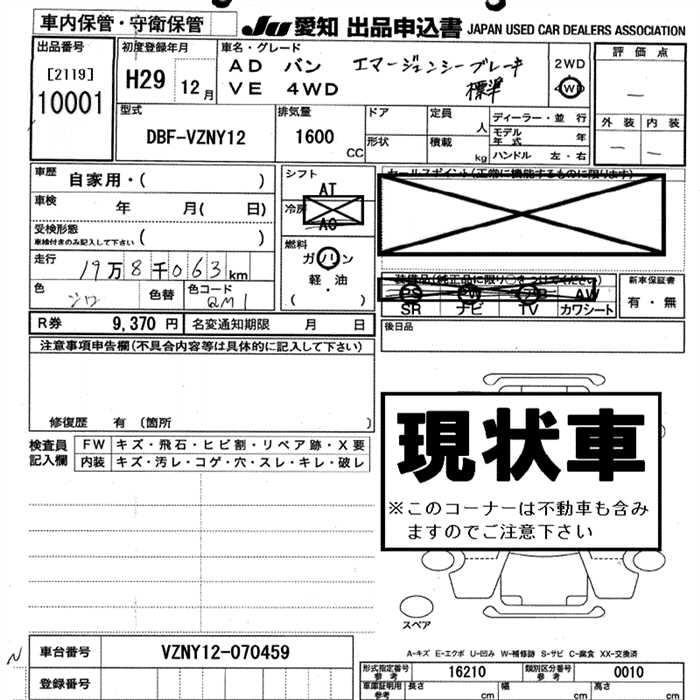 車内保管・守衛保管
JU 愛知 出品申込書 JAPAN USED CAR DEALERS ASSOCIATION
出品番号
[2119]
10001
初度登録年月
H29 12月
車名・グレード
AD バン エマージェンシーブレーキ
VE 4WD 標準
2WD
4WD
評価点
—
外装 内装
— —
型式
DBF-VZNY12
排気量
1600
CC
ドア
形状
定員
人
積載
kg
ディーラー・並行
モデル年式 年
ハンドル 左・右
車歴
自家用・( )
車検
年 月( 日)
受検形態
車検付きのみ記入して下さい ( )
走行
19万8千063km
色
シロ
色替
色コード
QM1
シフト
AT
冷房
AC
燃料
ガソリン
軽・油
( )
セールスポイント(正常に機能するものに限ります)
装備品(純正品に限り○をつけてください)
SR ナビ TV カワシート
AW
新車保証書
有・無
R券 9,370 円 名変通知期限 月 日
後日品
注意事項申告欄(不具合内容等は具体的に記入して下さい)
修復歴 有 (箇所 )
検査員
記入欄
FW キズ・飛石・ヒビ割・リペア跡・X要
内装 キズ・汚レ・コゲ・穴・スレ・キレ・破レ
現状車
※このコーナーは不動車も含み
ますのでご注意下さい
スペア
A-キズ E-エクボ U-凹み W-補修跡 S-サビ C-腐食 XX-交換済
車台番号 VZNY12-070459
登録番号
型式指定番号
参考
16210
類別区分番号
参考
0010
車庫証明用
参考
長さ cm 幅 cm 高さ cm